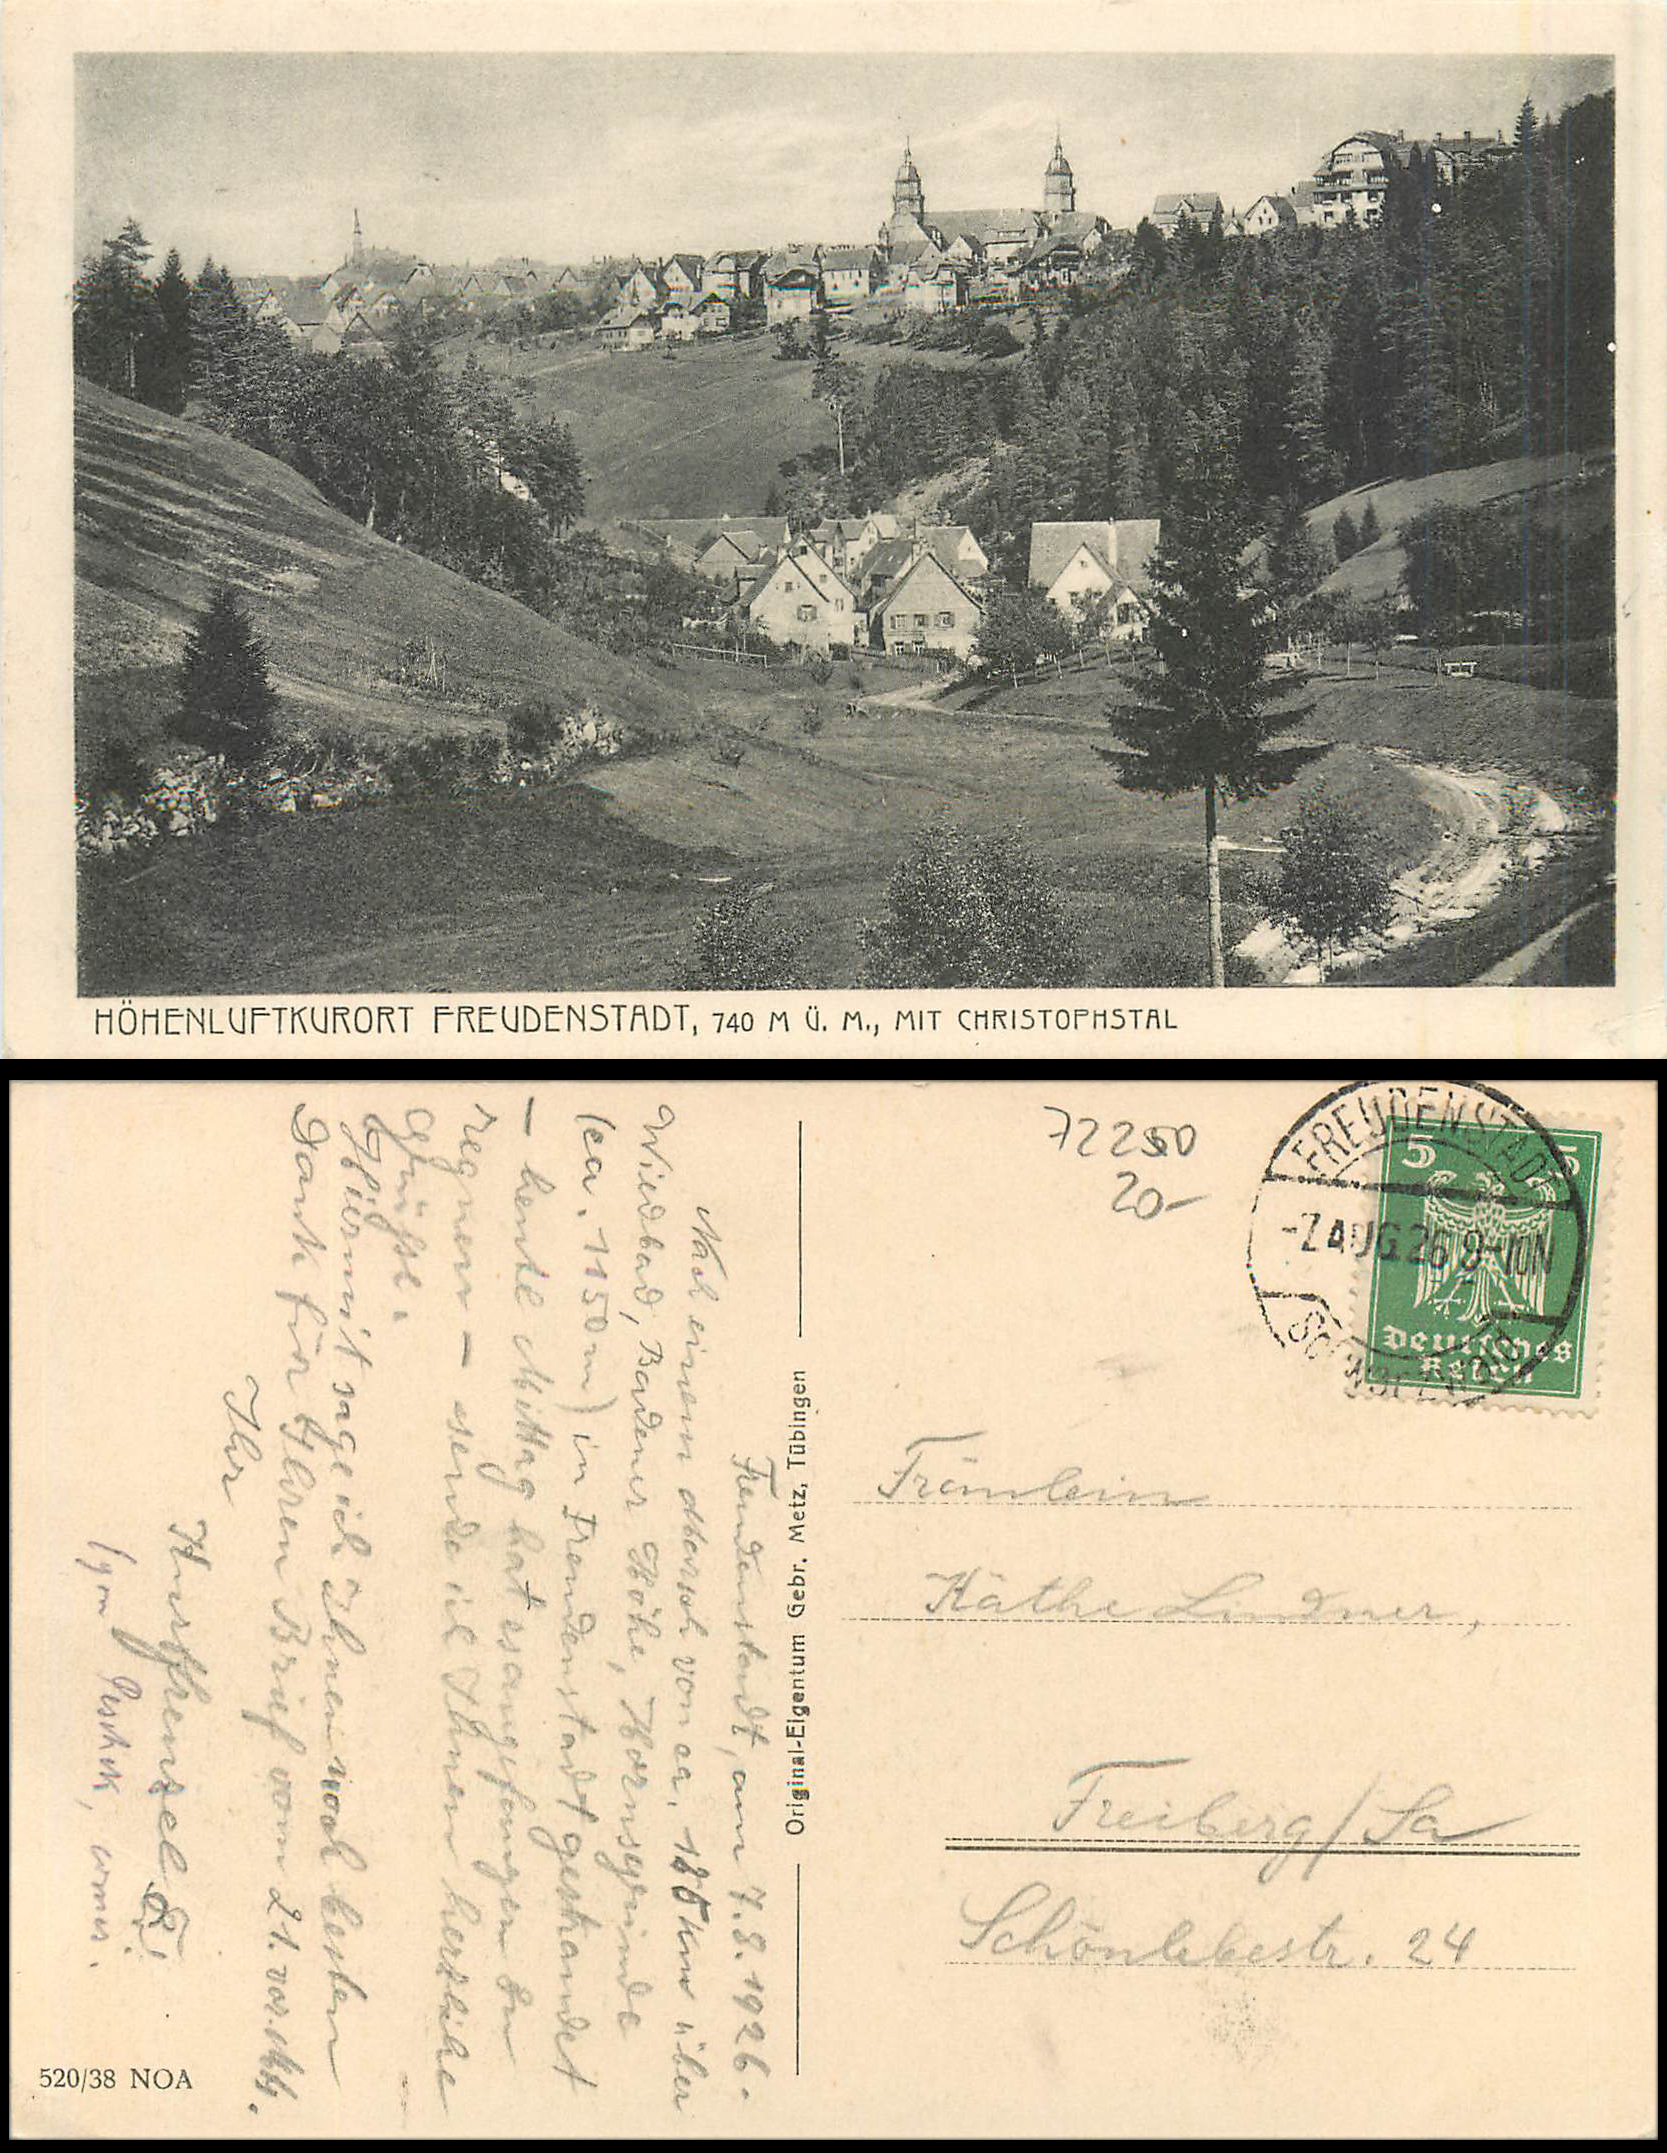 HÖHENLUFTKURORT FREUDENSTADT, 740 M Ü. M., MIT CHRISTOPHSTAL
72250
20-
FREUDENSTADT
-7.AUG.26 8-10N
5 5
Deutsches
Reich
Freudenstadt, am 7.8.1926.
Nach einem Marsch von ca. 185 km über
Wildbad, Badener Höhe, Hornisgrinde
(ca. 1150 m) in Freudenstadt gestrandet
- heute Mittag hat es angefangen zu
regnen - sende ich Ihnen herzliche
Grüße.
Hiermit sage ich Ihnen noch besten
Dank für Ihren Brief vom 21. vor. Mts.
Ihr
Original-Eigentum Gebr. Metz, Tübingen
Fräulein
Käthe Lindner,
Freiberg/Sa
Schönlebestr. 24
520/38 NOA